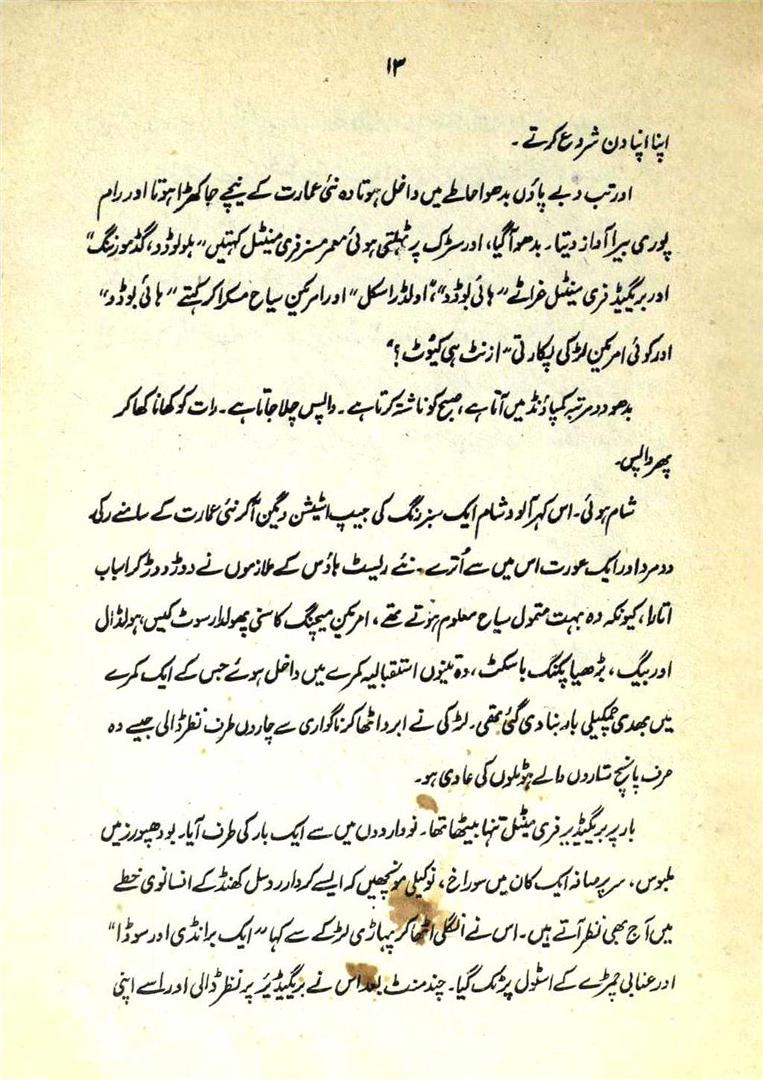 ۱۳
اپنا اپنا دن شروع کرتے ۔
اور تب دبے پاؤں بدھو احاطے میں داخل ہوتا وہ نئی عمارت کے نیچے جا کھڑا ہوتا اور رام
پوری بیرا آواز دیتا۔ بدھو آگیا، اور سڑک پر ٹہلتی ہوئی معمر مسز فری مینٹل کہتیں ”ہلو لوڈو، گڈ مورننگ“
اور بریگیڈ فری مینٹل غراتے ”ہائی بوڈو“، ”اولڈ راسکل“ اور امریکن سیاح مسکرا کر کہتے ”ہائی بوڈو“
اور کوئی امریکن لڑکی پکارتی ”ازنٹ ہی کیوٹ ؟“
بدھو دو مرتبہ کمپاؤنڈ میں آتا ہے، صبح کو ناشتہ کرتا ہے ۔ واپس چلا جاتا ہے ۔ رات کو کھانا کھا کر
پھر واپس۔
شام ہوئی۔ اس کہر آلود شام ایک سبز رنگ کی جیپ اسٹیشن ویگن آکر نئی عمارت کے سامنے رکی۔
دو مرد اور ایک عورت اس میں سے اُترے ۔ نئے ریسٹ ہاؤس کے ملازموں نے دوڑ دوڑ کر اسباب
اتارا، کیونکہ وہ بہت متمول سیاح معلوم ہوتے تھے، امریکن میچنگ کاسنی پھولدار سوٹ کیس، ہولڈال
اور بیگ، بڑھیا پکنگ باسکٹ، وہ تینوں استقبالیہ کمرے میں داخل ہوئے جس کے ایک کمرے
میں بھدی چمکیلی بار بنا دی گئی تھی۔ لڑکی نے ابرو اٹھا کر ناگواری سے چاروں طرف نظر ڈالی جیسے وہ
صرف پانچ ستاروں والے ہوٹلوں کی عادی ہو۔
بار پر بریگیڈیر فری مینٹل تنہا بیٹھا تھا۔ نو واردوں میں سے ایک بار کی طرف آیا۔ بودھپورز میں
ملبوس، سر پر صافہ ایک کان میں سوراخ، نوکیلی مونچھیں کہ ایسے کردار روہیل کھنڈ کے افسانوی خطے
میں آج بھی نظر آتے ہیں۔ اس نے انگلی اٹھا کر پہاڑی لڑکے سے کہا ”ایک برانڈی اور سوڈا“
اور عنابی چمڑے کے اسٹول پر ٹک گیا۔ چند منٹ بعد اس نے بریگیڈیر پر نظر ڈالی اور اسے اپنی